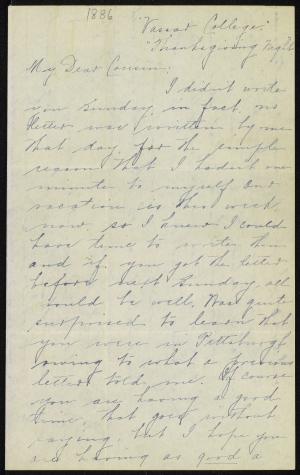 1886
Vassar College.
Thanksgiving Night
My Dear Cousin:
I didn't write
you Sunday, in fact, no
letter was written by me
that day, for the simple
reason that I hadn't one
minute to myself and
vacation is this week
now, so I knew I could
have time to write then
and if you got the letter
before next Sunday, all
would be well. Was quite
surprised to learn that
you were in Pittsburgh
owing to what a previous
letter told me. Of course
you are having a good
time, that goes without
saying, but I hope you
are having as good a